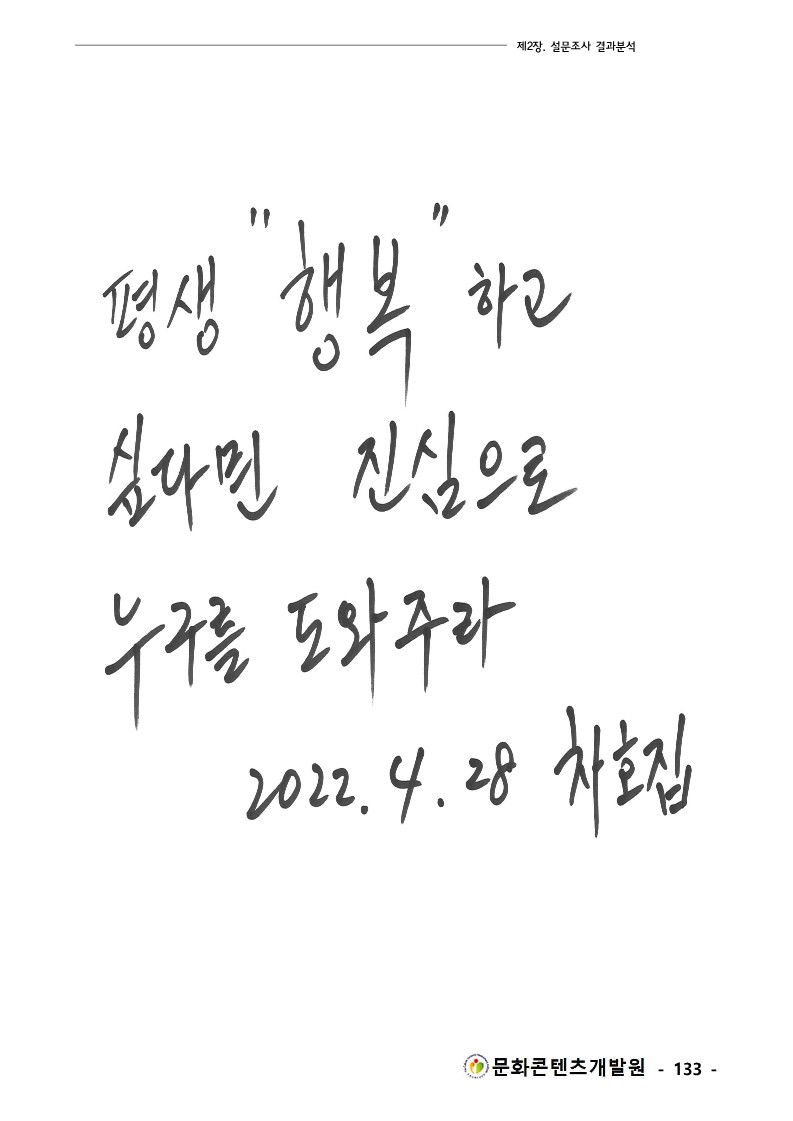 제2장. 설문조사 결과분석
평생 "행복" 하고
싶다면 진심으로
누구를 도와주라
2022. 4. 28 차호집
문화콘텐츠개발원 - 133 -